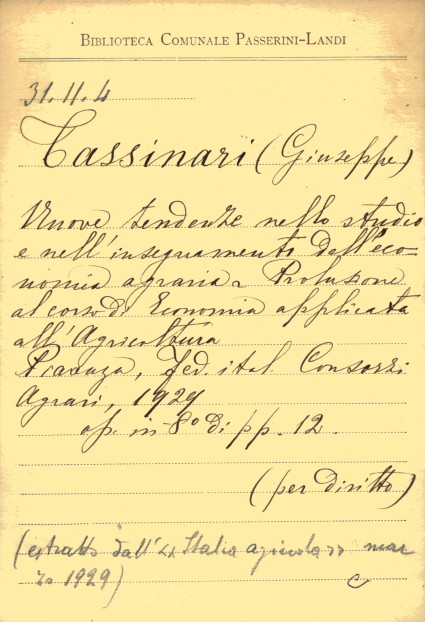 BIBLIOTECA COMUNALE PASSERINI-LANDI
31.11.4
Tassinari (Giuseppe)
Nuove tendenze nello studio
e nell'insegnamento dell'eco-
nomia agraria - Prolusione
al corso di Economia applicata
all'Agricoltura
Piacenza, Fed. ital. Consorzi
Agrari, 1929
op. in-8° di pp. 12.
(per diritto)
(estratto dall'"Italia agricola" mar
zo 1929)